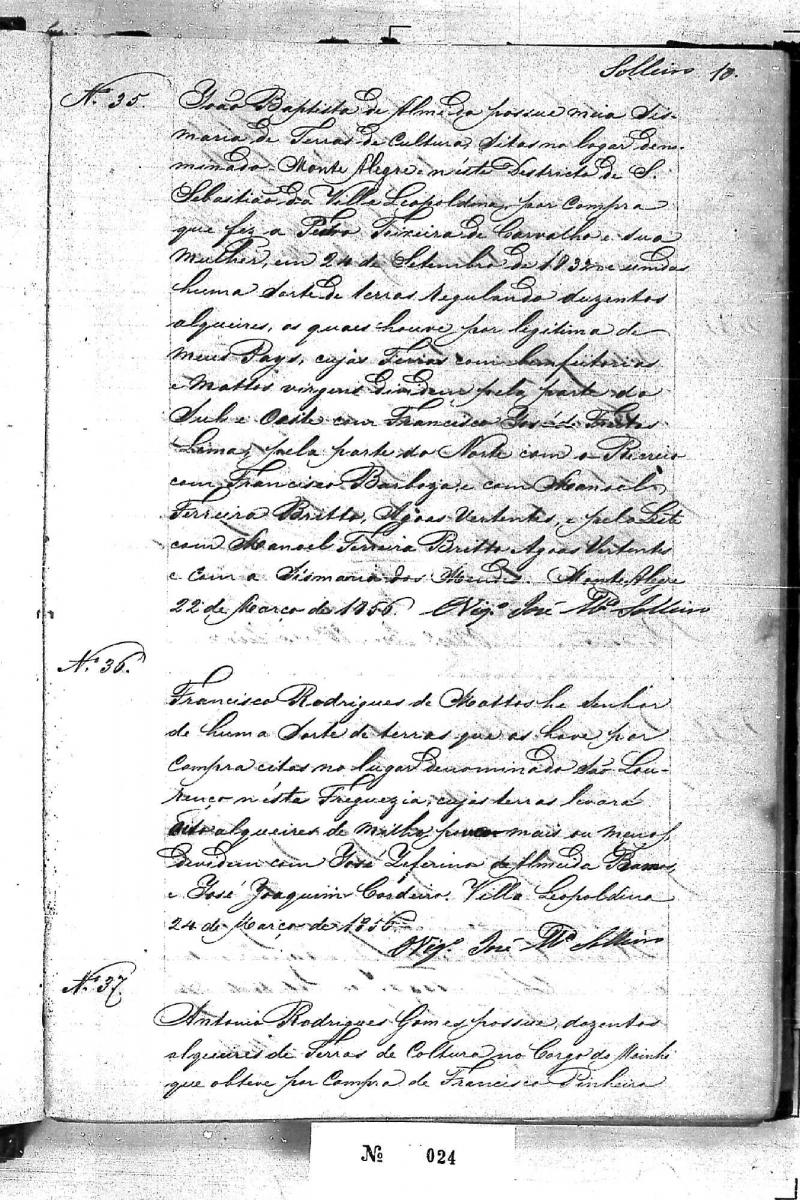 Solleiro 10.
Nº 35. João Baptista de Almeida possue meia Sis-
maria de Terras de Cultura, sitas no logar deno-
minado - Monte Alegre - n'éste Districto de S.
Sebastião da Villa Leopoldina, por compra
que fez a Pedro Teixeira de Carvalho e sua
mulher, em 24 de Setembro de 1832 e
huma sorte de terras regulando duzentos
alqueires, os quaes houve por legitima de
meus Pays, cujas Terras com bemfeitorias
e Mattos virgens dividem pela parte do
Sul e Oeste com Francisco José de Freitas
Lima, pela parte do Norte com o Recreio
com Francisco Barboza, e com Manoel
Ferreira Britto, Agoas Vertentes, e pelo Léste
com Manoel Ferreira Britto Agoas Vertentes
e com a Sismaria dos Mendes. Monte Alegre
22 de Março de 1856. O Vigº José Mª Solleiro
Nº 36.
Francisco Rodrigues de Mattos he senhor
de huma sorte de terras que as houve por
compra citas no lugar denominado São Lou-
renço n'ésta Freguezia, cujas terras levará
oito alqueires de milho pouco mais ou menos,
devedem com José Zeferino de Almeida Ramos,
e José Joaquim Cordeiro. Villa Leopoldina
24 de Março de 1856.
O Vigº José Mª Solleiro
Nº 37
Antonio Rodrigues Gomes possue, dozentos
alqueires de Terras de Coltura no Corgo do Moinho
que obteve por compra de Francisco Pinheiro
Nº 024